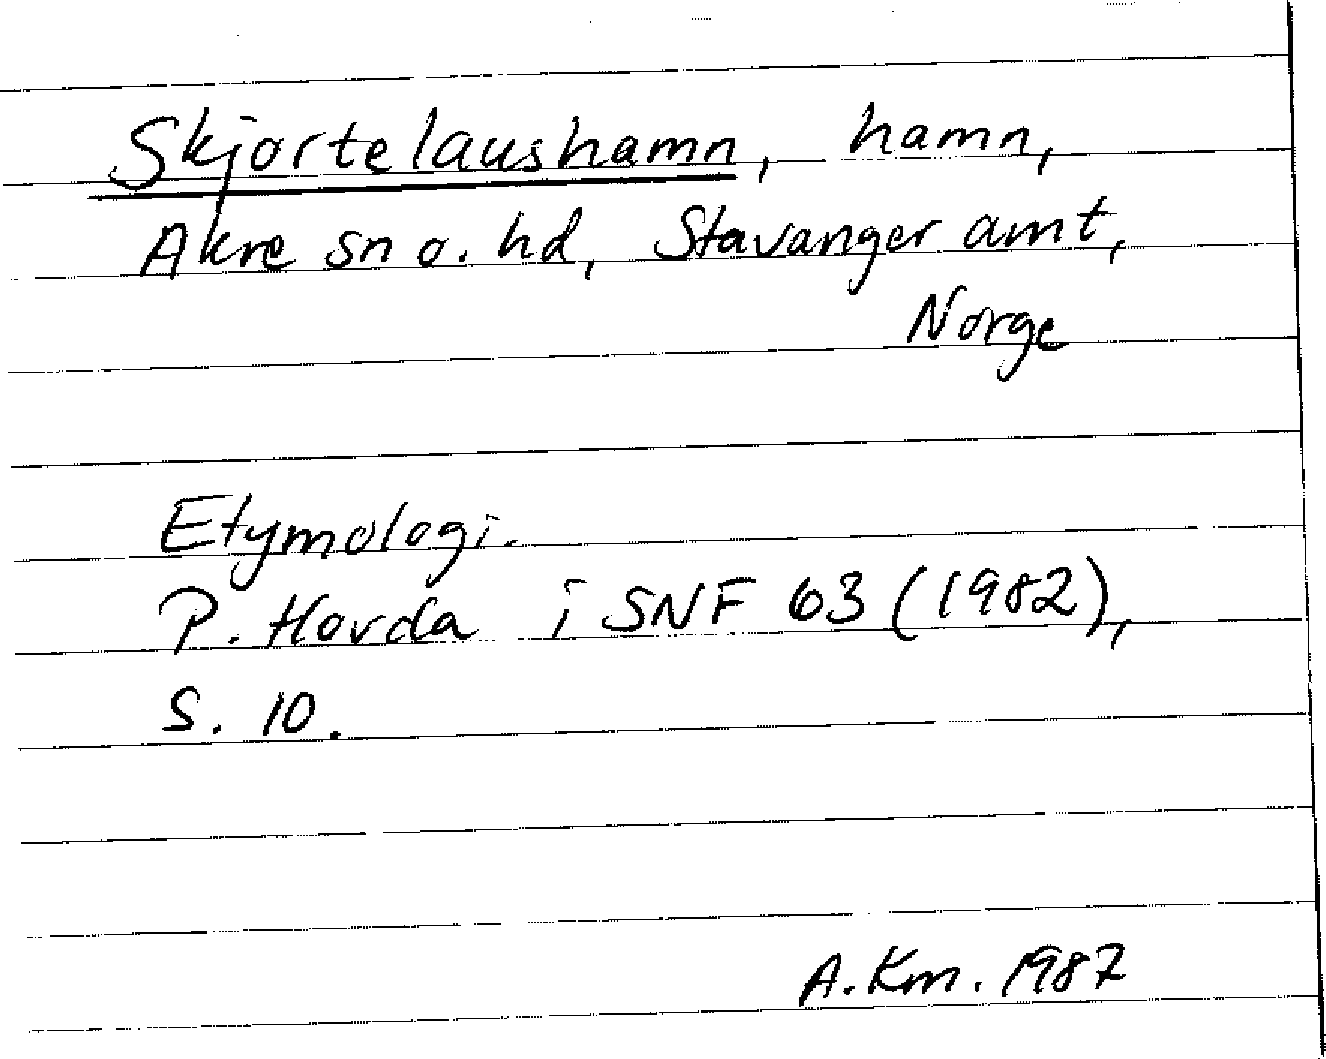 Skjortelaushamn, hamn,
Akre sn o. hd, Stavanger amt,
Norge
Etymologi.
P. Hovda i SNF 63 (1982),
S. 10.
A. Km. 1987